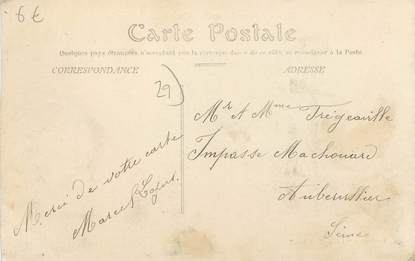 6€
Carte Postale
Quelques pays étrangers n'acceptent pas la correspondance de ce côté, se renseigner à la Poste.
CORRESPONDANCE
ADRESSE
29
Merci de votre carte
Marcel
Mr et Mme
Impasse Machouard
Aubervillier
Seine